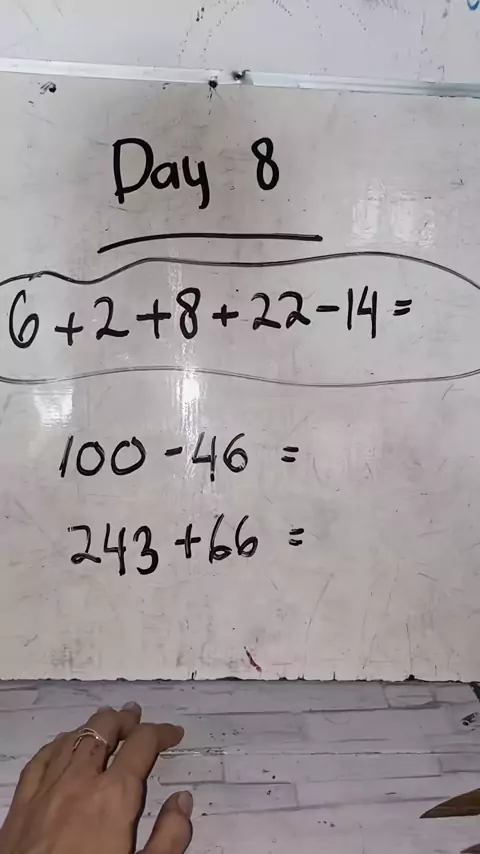 Day 8
6+2+8+22-14=
100-46=
243+66=